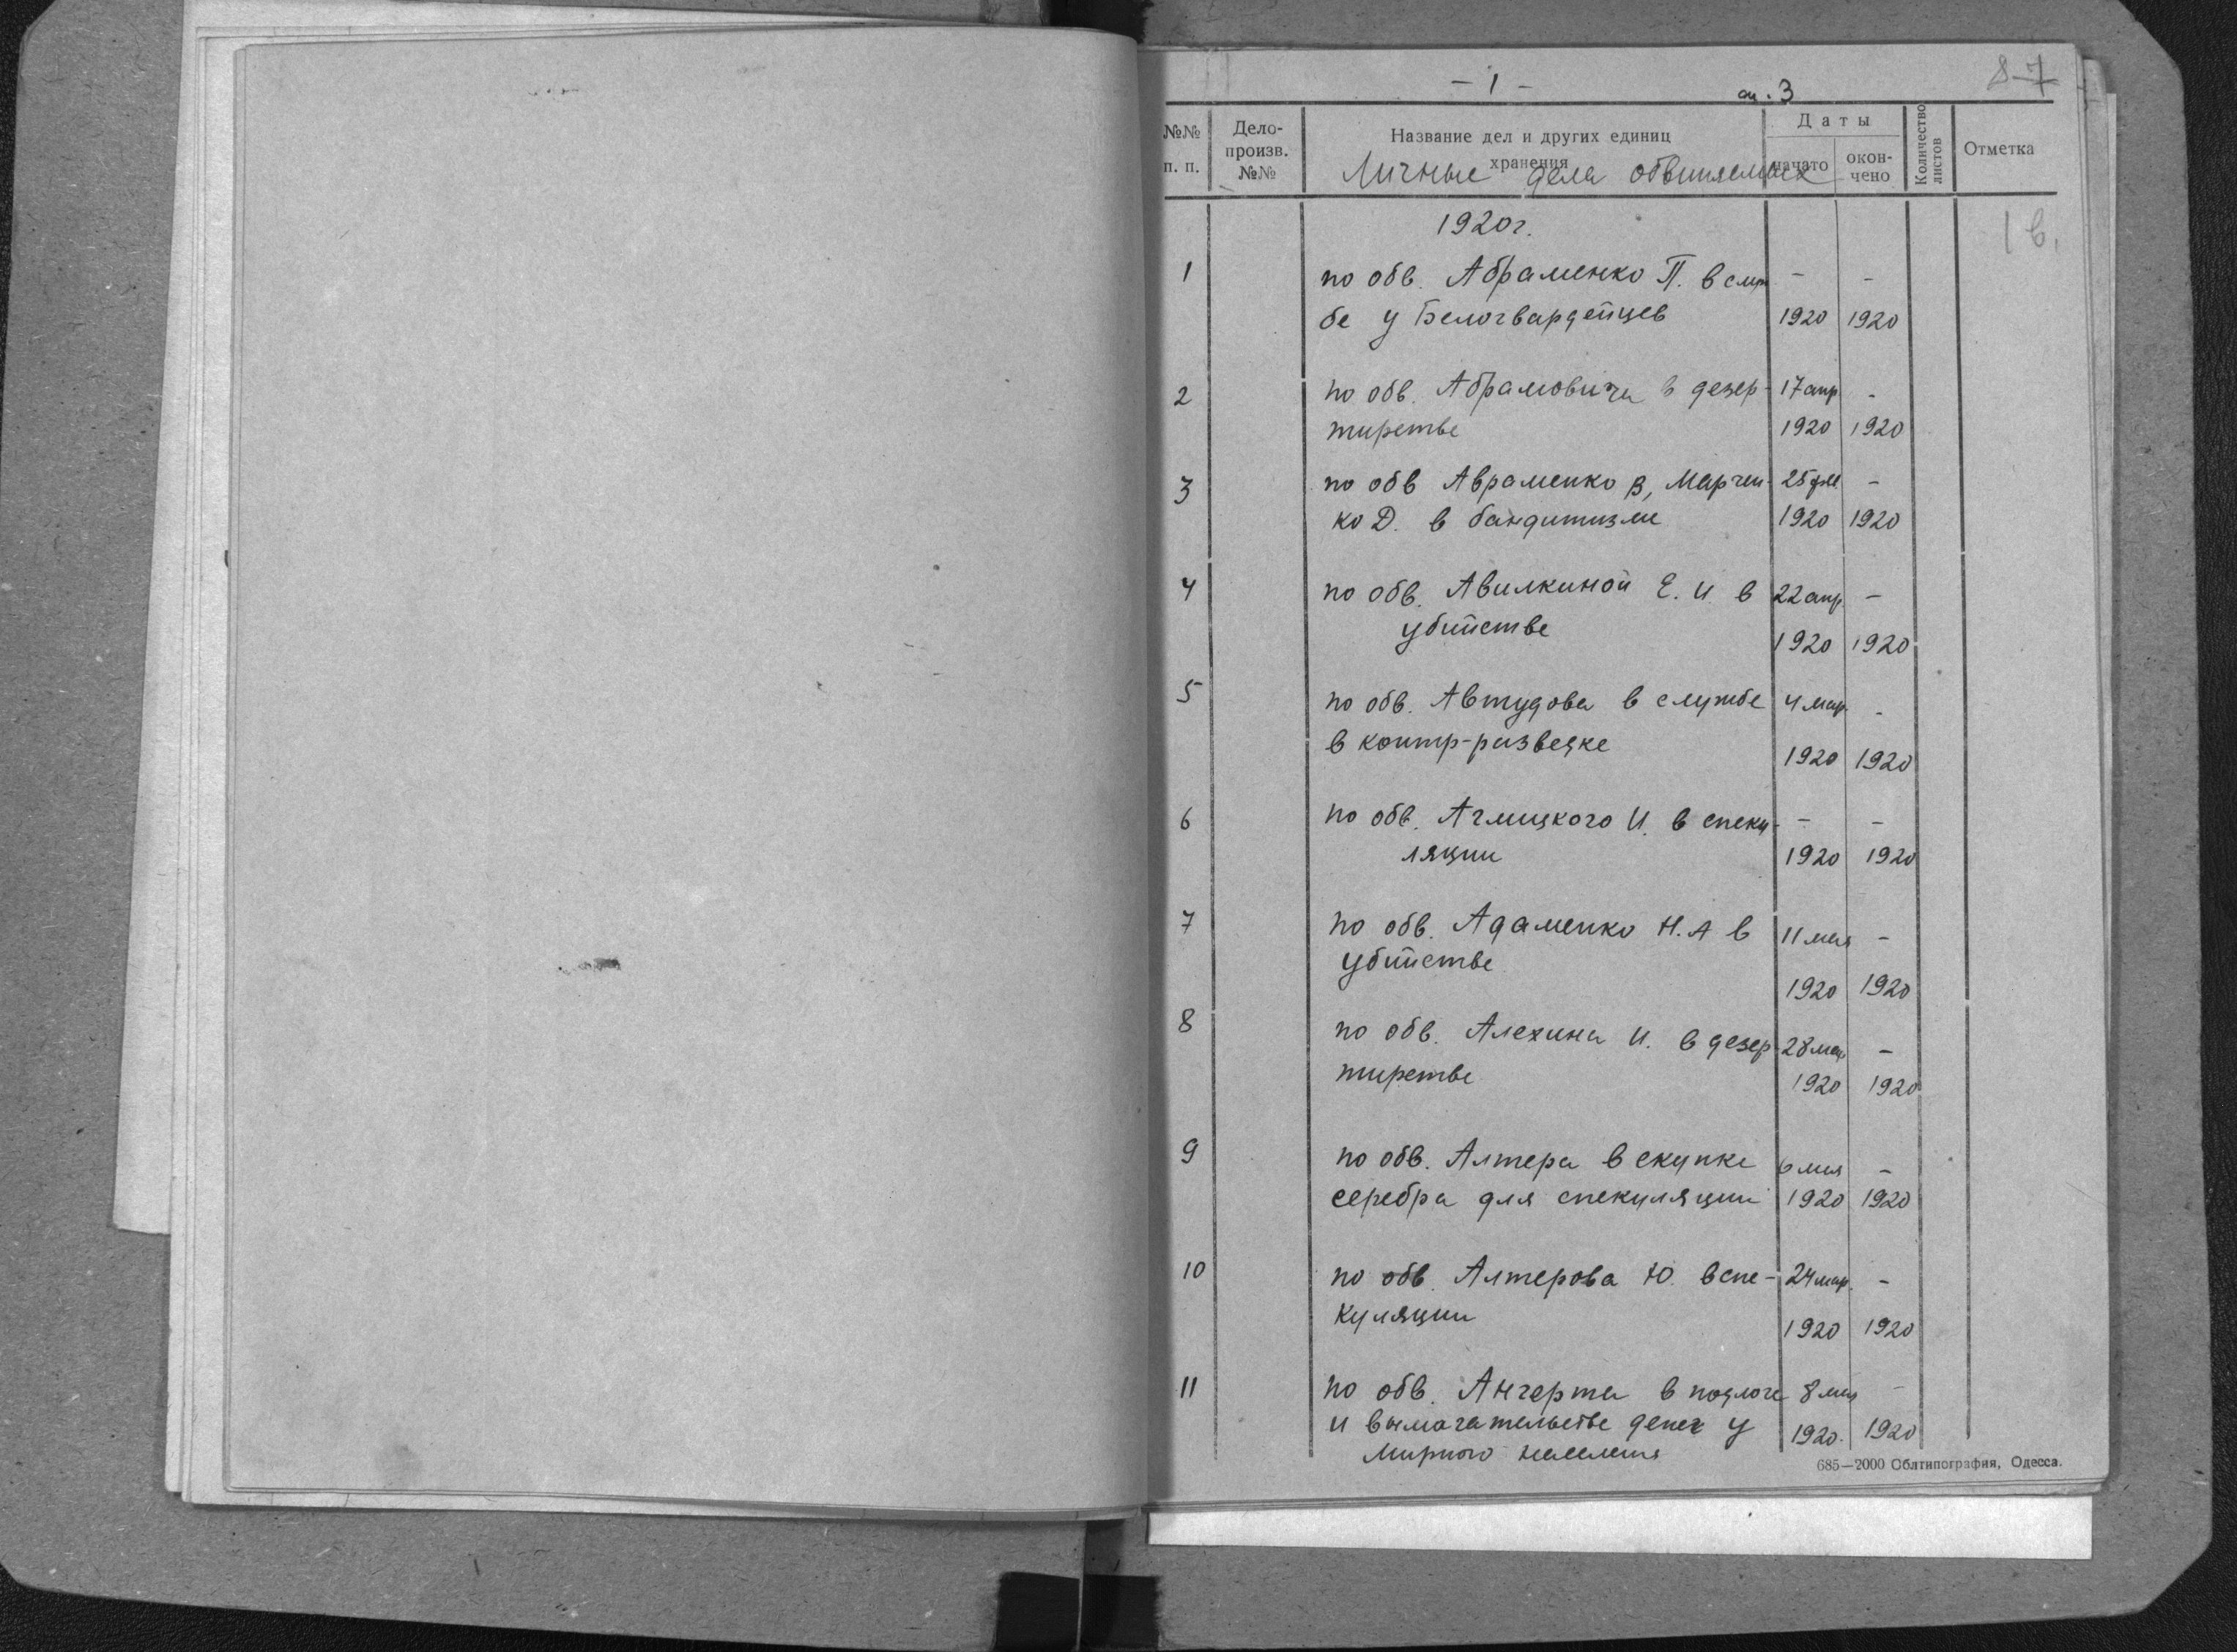 - 1 -
оп. 3
8 7
№№ п. п.
Дело-произв. №№
Название дел и других единиц хранения
Даты
начато
окон-чено
Количество листов
Отметка
Личные дела обвиняемых
1920г.
1 по обв. Абраменко П. в служ - -
бе у Белогвардейцев 1920 1920
2 по обв. Абрамовича в дезер- 17 апр -
тирстве 1920 1920
3 по обв Авраменко В, Марчен- 25 фев. -
ко Д. в бандитизме 1920 1920
4 по обв. Авилкиной Е. И. в 22 апр. -
убийстве 1920 1920
5 по обв. Автудова в службе 4 мар. -
в контр-разведке 1920 1920
6 по обв. Аглицкого И. в спеку- - -
ляции 1920 1920
7 по обв. Адаменко Н. А в 11 мая -
убийстве 1920 1920
8 по обв. Алехина И. в дезер- 28 мар -
тирстве 1920 1920
9 по обв. Алтера в скупке 6 мая -
серебра для спекуляции 1920 1920
10 по обв. Алтерова Ю. в спе- 24 мар. -
куляции 1920 1920
11 по обв. Ангерта в подлоге 8 мая -
и вымогательстве денег у 1920. 1920
мирного населения
685—2000 Облтипография, Одесса.